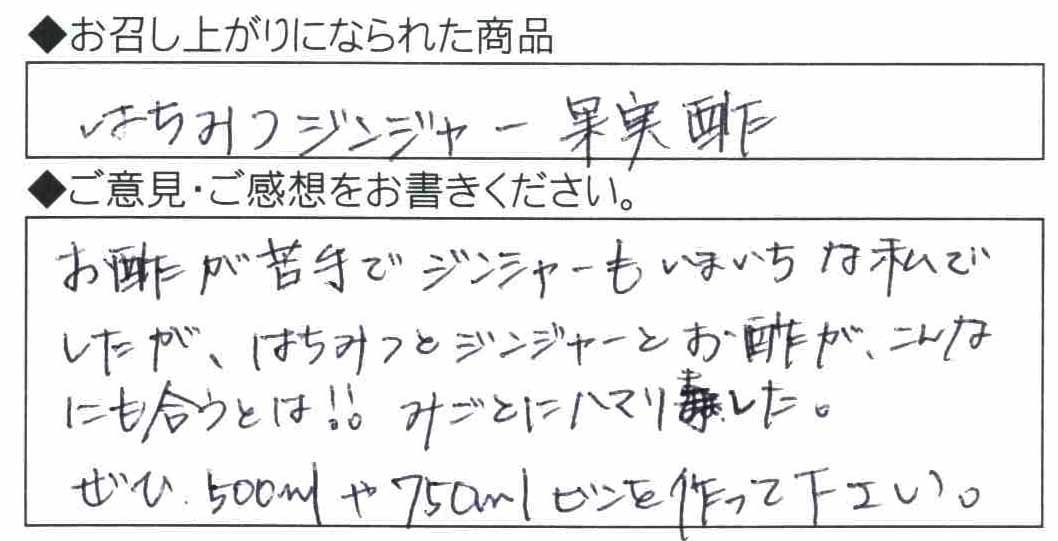 ◆お召し上がりになられた商品
はちみつジンジャー果実酢
◆ご意見・ご感想をお書きください。
お酢が苦手でジンジャーもいまいちな私で
したが、はちみつとジンジャーとお酢が、こんな
にも合うとは!!。みごとにハマりました。
ぜひ、500mlや750mlビンを作って下さい。